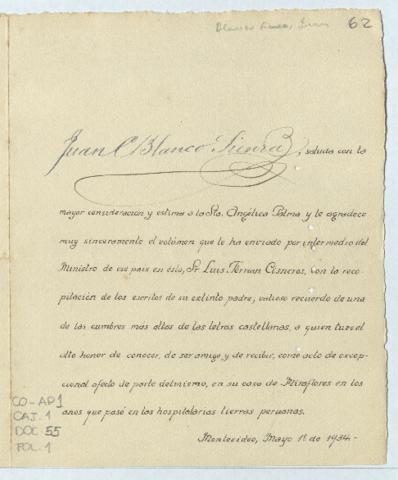 Blanco Sienra, Juan
62
Juan C Blanco Sienra, saluda con la
mayor consideración y estima a la Sta. Angélica Palma y le agradece
muy sinceramente el volúmen que le ha enviado por intermedio del
Ministro de ese país en ésta, Sr. Luis Fernan Cisneros, con la reco-
pilación de los escritos de su extinto padre, valioso recuerdo de una
de las cumbres más altas de las letras castellanas, a quien tuve el
alto honor de conocer, de ser amigo y de recibir, como acto de excep-
cional afecto de parte del mismo, en su casa de Miraflores en los
años que pasé en las hospitalarias tierras peruanas.
Montevideo, Mayo 11 de 1934.-
CO-AP1
CAJ. 1
DOC. 55
FOL. 1